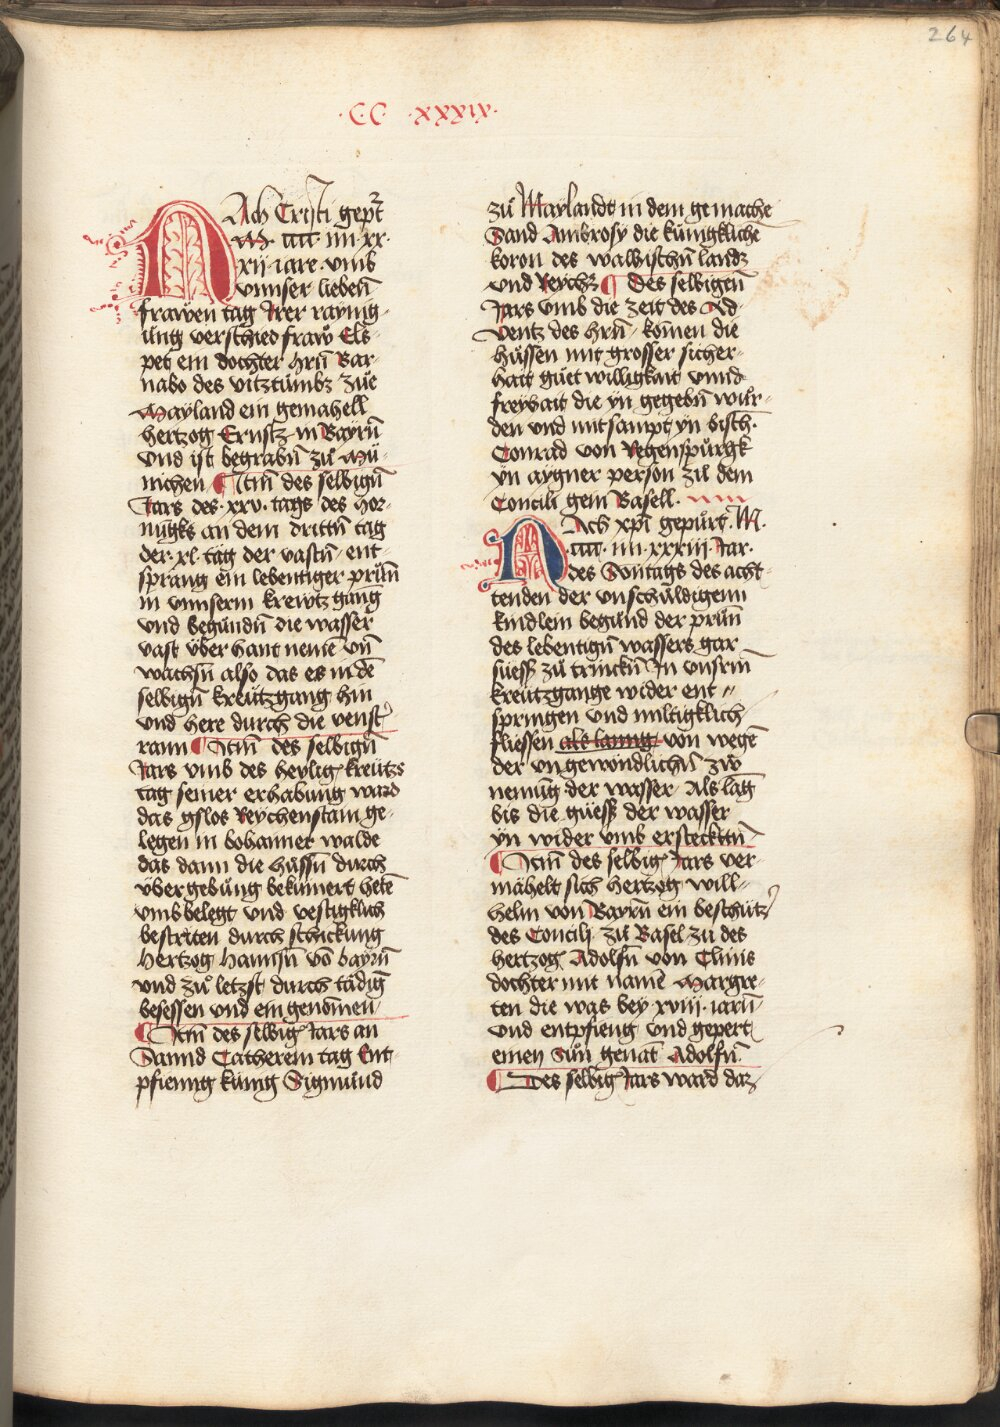 264
·CC ·xxxix·
NAch Cristi gepurt
M· cccc· iiii· xx·
xii· iare· vmb
vnnser lieben̄
frawen tag Irer raynig-
ūng verschied fraẘ Els-
pet ein dochter hrn̄ Bar-
nabo des vitztumbz zůe
Mayland ein gemahell
hertzog Ernstz in Bayrn̄
vnd ist begrabn̄ zů Mü-
nichen ¶ Itm̄ des selbign̄
Jars des· xxv· tags des Hor-
nūgks an dem drittn̄ tag
der· xl· tag der vastn̄· ent-
sprang ein lebentiger prūn̄
in vnnserm krewtz gang
vnd begundn̄ die wasser
vast über hant nemē vn̄
wachsn̄ also das es in dē
selbign̄ kreützgang hin
vnd here durch die venst̾
rann ¶ Itm̄ des selbign̄
Jars vmb des heyliḡ kreütz
tag seiner erhabung ward
das gslos Reychenstain ge-
legen in bohamer walde
das dann die hussn̄ durch
übergebūng bekümert hetē
vmb belegt vnd vestigklich
bestriten durch schickung
Hertzog hannsn̄ vō bayrn̄
vnd zů letzst durch tädiḡ
besessen vnd ein genōmen
¶ Itm̄ des selbiḡ Jars an
Sannd Catherein tag Ent-
pfieng künig Sigmūnd
zů Maylandt in dem gemache
Sand Ambrosy die künigklichē
koron des walhischn̄ landz
vnd Reychz ¶ Des selbigen̄
Jars vmb die zeit des Ad-
ventz des hrn̄· kōmen die
hüssen mit grosser sicher-
hait güet willigkait vnnd
freyhait die yn gegebn̄ wůr-
den vnd mitsampt yn bisch̄·
Conrad von Regenspůrgk
yn aygner person zu dem
Concili gem Basell·
NAch xp̄i gepurt· M·
·cccc· iiii· xxxiii· Jar·
des Sontags des acht-
tenden der vnschüldigenn
kindlein begund der prūn̄
des lebentign̄ wassers gar
süess zů trinckn̄ In vnsrm̄
kreützgange wider ent-
springen vnd miltigklich
fliessen als lanng von wegē
der vngewondlichn̄ zw
nemūg der wasser· Als lāg
bis die güess der wasser
yn wider vmb ersteckttn̄
¶ Itm̄ des selbiḡ Jars ver-
mähelt sich hertzog will-
helm von Bayrn̄ ein beschütz̾
des Concilj zů Basel zu des
hertzog Adolfn̄ von Clinis
dochter mit namē Margre-
ten die was bey xviii· iarn̄
vnd entpfieng vnd gepert
einen Sůn genāt Adolfn̄
¶ Des selbiḡ Jars ward daz